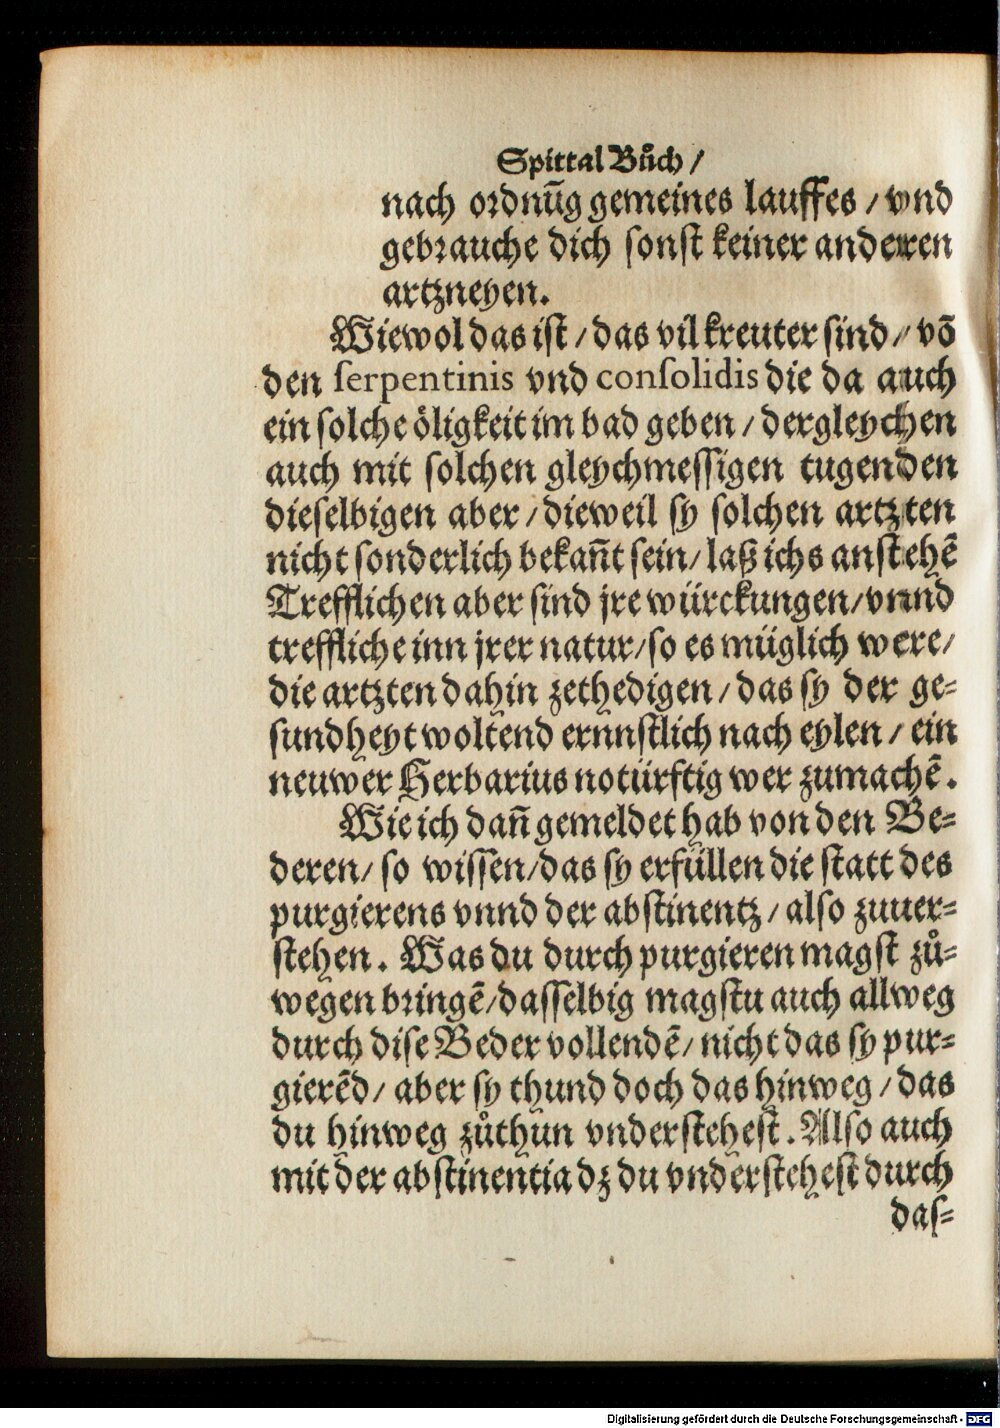 Spittal Bůch /
nach ordnūg gemeines lauffes / vnd
gebrauche dich sonst keiner anderen
artzneyen.
Wiewol das ist / das vil kreuter sind / vō
den serpentinis vnd consolidis die da auch
ein solche öligkeit im bad geben / dergleychen
auch mit solchen gleychmessigen tugenden
dieselbigen aber / dieweil sy solchen artzten
nicht sonderlich bekañt sein / laß ichs anstehē
Trefflichen aber sind jre würckungen / vnnd
treffliche inn jrer natur / so es müglich were /
die artzten dahin zethedigen / das sy der ge=
sundheyt woltend ernnstlich nach eylen / ein
neuwer Herbarius notürftig wer zumachē.
Wie ich dañ gemeldet hab von den Be=
deren / so wissen / das sy erfüllen die statt des
purgierens vnnd der abstinentz / also zuuer=
stehen. Was du durch purgieren magst zů=
wegen bringē / dasselbig magstu auch allweg
durch dise Beder vollendē / nicht das sy pur=
gierēd / aber sy thund doch das hinweg / das
du hinweg zůthun vnderstehest. Also auch
mit der abstinentia dz du vnderstehest durch
das=
Digitalisierung gefördert durch die Deutsche Forschungsgemeinschaft - DFG